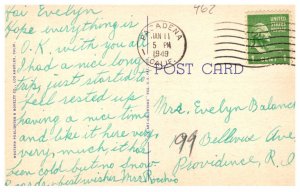 Hai Evelyn
Hope everything is
O.K. with you all
I had a nice long
trip, just started to
feel rested up
having a nice time
and like it here very
very, much, it has
been cold but no snow
Regards, best wishes Mrs Rocchio
462
PASADENA
JAN 11
5 PM
1949
CALIF.
POST CARD
Mrs. Evelyn Balance
199 Bellevue Ave
Providence, R.I